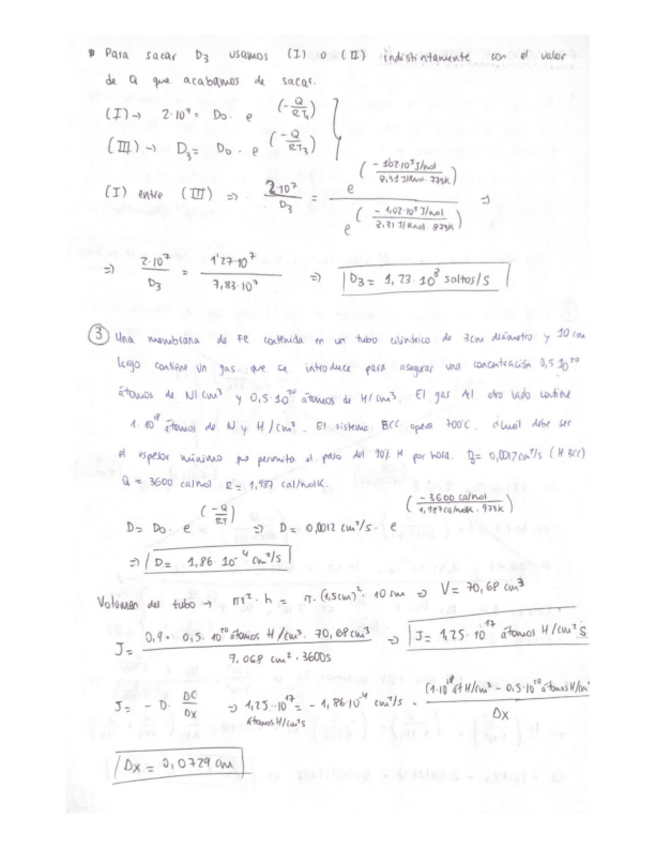 * Para sacar D3 usamos (I) o (II) indistintamente con el valor
de Q que acabamos de sacar.
(I) → 2·10⁷ = D0 · e^(-Q/RT1)
(III) → D3 = D0 · e^(-Q/RT3)
(I) entre (III) ⇒ 2·10⁷/D3 = e^(-102·10³ J/mol / 8,31 J/K·mol · 773K) / e^(-102·10³ J/mol / 8,31 J/K·mol · 873K)
⇒ 2·10⁷/D3 = 1'27·10⁷/7,83·10⁷ ⇒ D3 = 1,23·10⁸ saltos/s
③ Una membrana de Fe contenida en un tubo cilíndrico de 3cm diámetro y 10 cm
largo contiene un gas que se introduce para asegurar una concentración 0,5·10²⁰
átomos de N/cm³ y 0,5·10²⁰ átomos de H/cm³. El gas del otro lado contiene
1·10¹⁸ átomos de N y H/cm³. El sistema BCC opera 700ºC. ¿cual debe ser
el espesor mínimo que permita el paso del 90% H por hora. D0 = 0,0012 cm²/s (H BCC)
Q = 3600 cal/mol R = 1,987 cal/molK.
D = D0 · e^(-Q/RT) ⇒ D = 0,0012 cm²/s · e^(-3600 cal/mol / 1,987 cal/molK · 973K)
⇒ D = 1,86·10⁻⁴ cm²/s
Volumen del tubo → πr²·h = π·(1,5cm)²·10 cm ⇒ V = 70,68 cm³
J = 0,9·0,5·10²⁰ átomos H/cm³ · 70,68 cm³ / 7,068 cm²·3600s ⇒ J = 1,25·10¹⁷ átomos H/cm²s
J = -D · DC/DX ⇒ 1,25·10¹⁷ átomos H/cm²s = -1,86·10⁻⁴ cm²/s · (1·10¹⁸ át H/cm³ - 0,5·10²⁰ átomos H/cm³)/Δx
Dx = 0,0729 cm